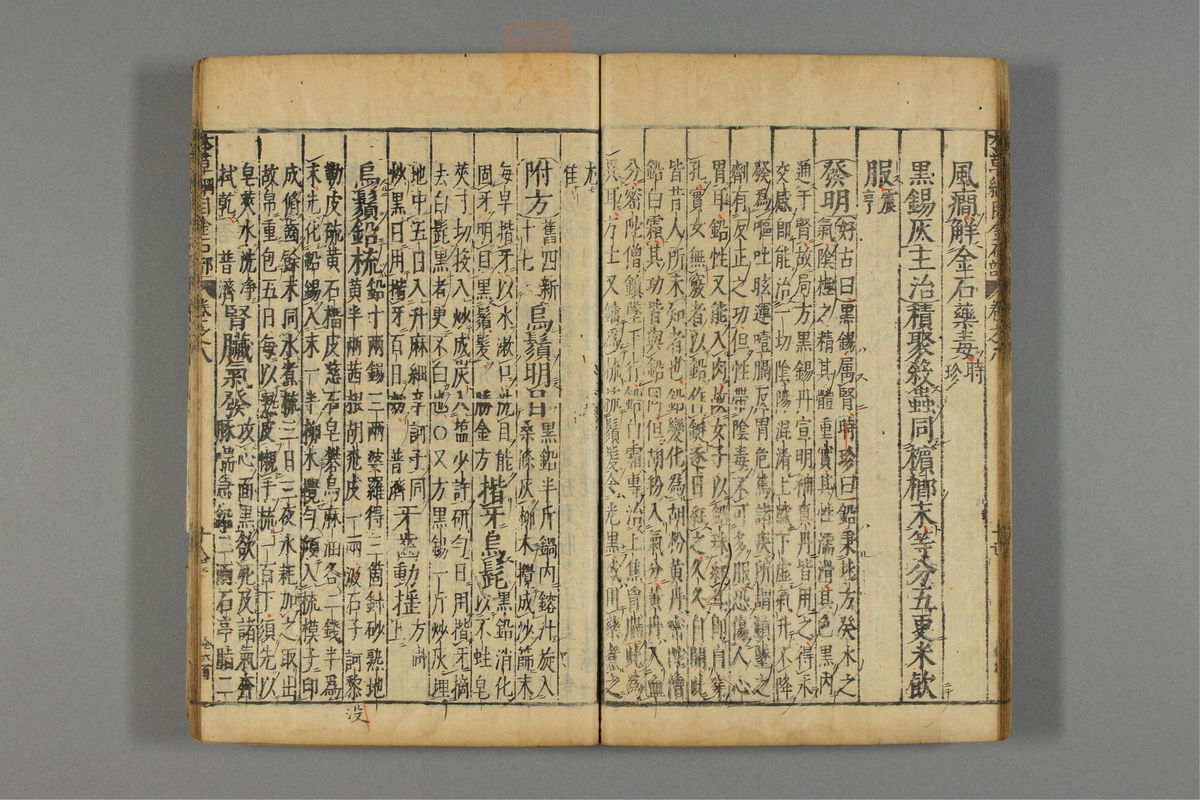 風癎解金石藥毒時珍
黑錫灰主治積聚殺蟲同檳榔末等分五更米飲
服震亨
發明好古曰黑錫属腎時珍曰鉛秉北方癸水之
氣陰極之精其體重實其性濡滑其色黑內
通于腎故局方黑錫丹宣明補真丹皆用之得汞
交感即能治一切陰陽混淆上盛下虛氣升不降
發為嘔吐眩運噎膈反胃危篤諸疾所謂鎮墜之
劑有反正之功但性帶陰毒不可多服恐傷人心
胃耳鉛性又能入肉故女子以鉛珠紝耳即自穿
孔實女無竅者以鉛作鋌逐日紝之久久自開此
皆昔人所未知者也鉛變化為胡粉黃丹密陀僧
鉛白霜其功皆與鉛同但胡粉入氣分黃丹入血
分密陀僧鎮墜下行鉛白霜專治上焦胸膈此為
異耳方士又鑄為梳梳鬚髮令光黑或用藥煮之
尤佳
附方舊四新十七烏鬚明目黑鉛半斤鍋內鎔汁旋入
桑條灰柳木攪成沙篩末
每早揩牙以水漱口洗目能
固牙明目黑鬚髮勝金方揩牙烏髭黑鉛消化以不蛀皂
莢寸切投入炒成炭入鹽少許研勻日用揩牙摘
去白髭黑者更不白也○又方黑錫一斤炒灰埋
地中五日入升麻細辛訶子同
炒黑日用揩牙百日效普濟牙齒動搖方同上
烏鬚鉛梳鉛十兩錫三兩婆羅得三箇針砂熟地
黃半兩茜根胡桃皮一兩没石子訶黎
勒皮硫黃石榴皮慈石皂礬烏麻油各二錢半為
末先化鉛錫入末一半柳木攪勻傾入梳模子印
成修齒餘末同水煮梳三日三夜水耗加之取出
故帛重包五日每以熟皮襯手梳一百下須先以
皂莢水洗淨
拭乾普濟腎臟氣發攻心面黑欲死及諸氣奔
豚喘急鉛二兩石亭脂二
没
本草綱目金石部 卷之八